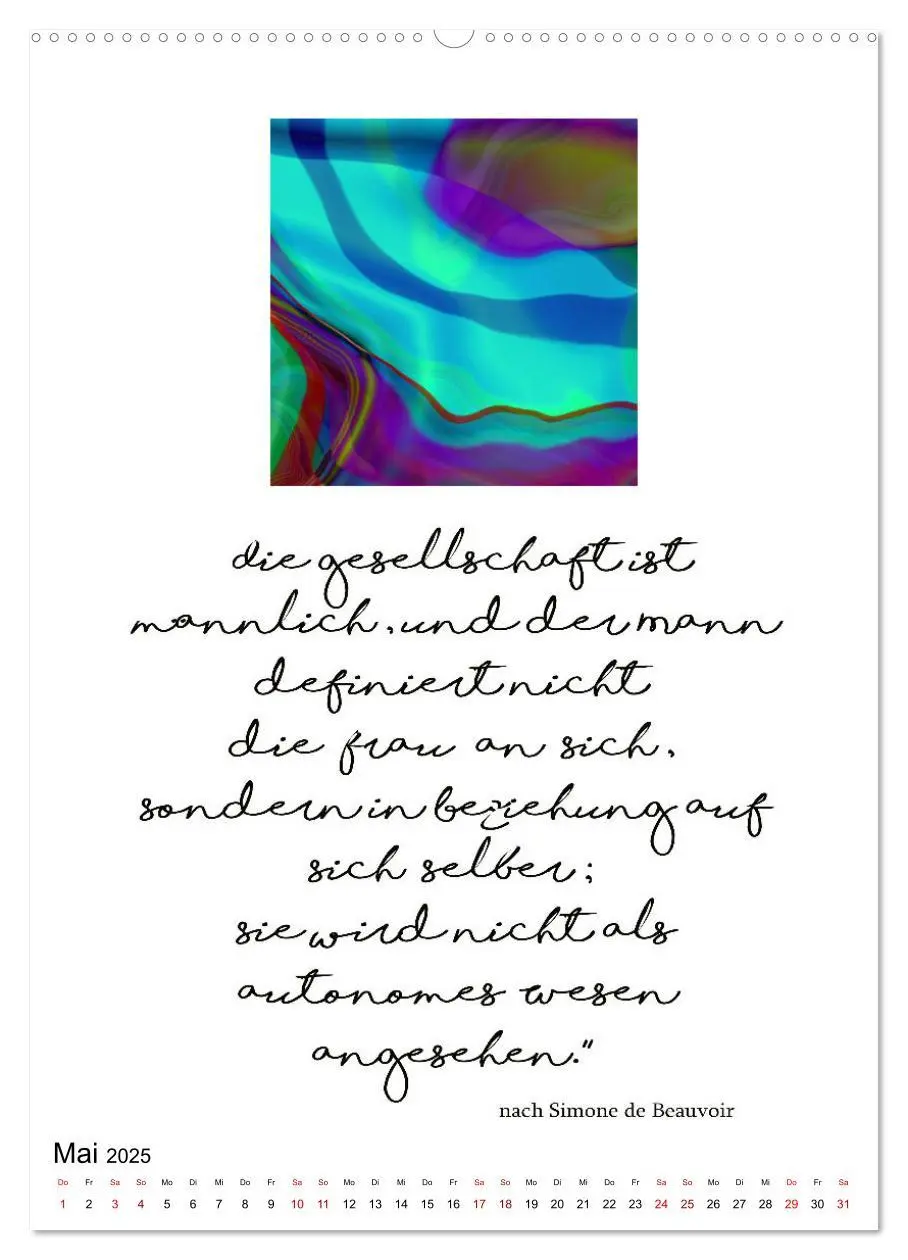 die gesellschaft ist
mannlich, und der mann
definiert nicht
die frau an sich,
sondern in beziehung auf
sich selber;
sie wird nicht als
autonomes wesen
angesehen."
nach Simone de Beauvoir
Mai 2025
Do Fr Sa So Mo Di Mi Do Fr Sa So Mo Di Mi Do Fr Sa So Mo Di Mi Do Fr Sa So Mo Di Mi Do Fr Sa
1 2 3 4 5 6 7 8 9 10 11 12 13 14 15 16 17 18 19 20 21 22 23 24 25 26 27 28 29 30 31